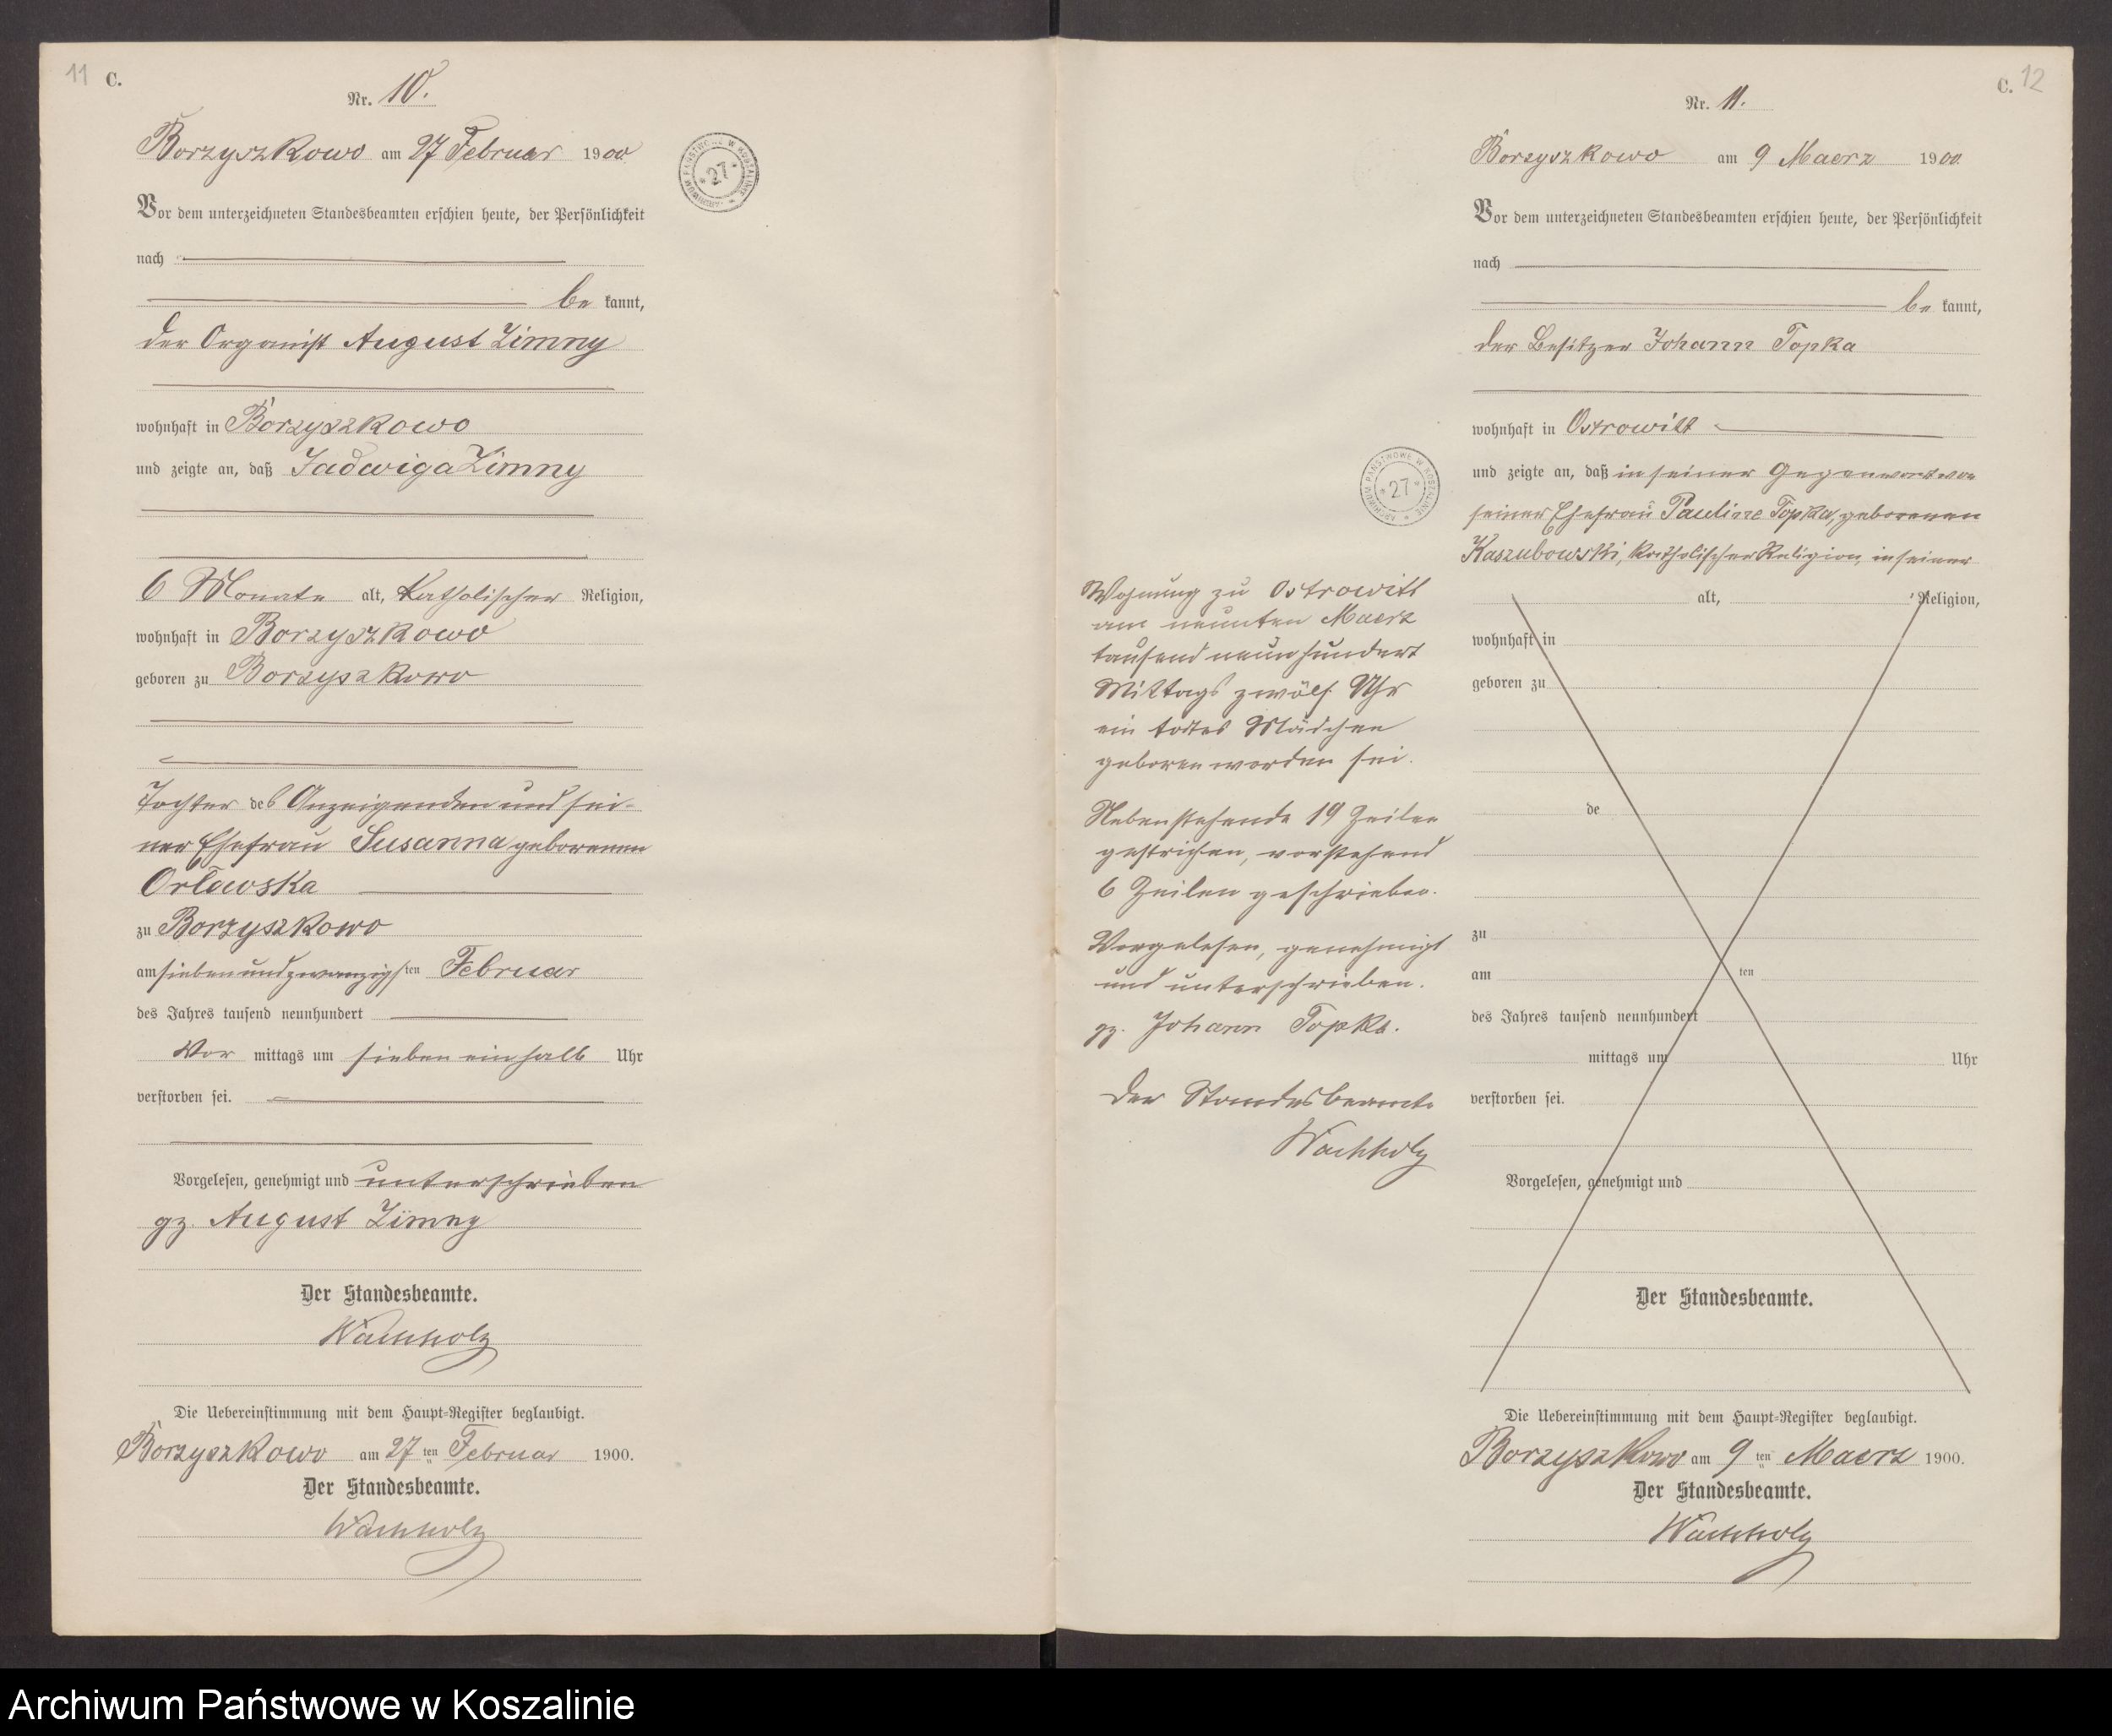 11 C.
Nr. 10.
Borzyszkowo am 27 Februar 1900
Vor dem unterzeichneten Standesbeamten erschien heute, der Persönlichkeit
nach
be kannt,
der Organist August Zimny
wohnhaft in Borzyszkowo
und zeigte an, daß Jadwiga Zimny
6 Monate alt, katholischer Religion,
wohnhaft in Borzyszkowo
geboren zu Borzyszkowo
Tochter des Anzeigenden und sei-
ner Ehefrau Susanna geborenen
Orlowska
zu Borzyszkowo
am siebenundzwanzigsten Februar
des Jahres tausend neunhundert
Vor mittags um sieben ein halb Uhr
verstorben sei.
Vorgelesen, genehmigt und unterschrieben
gz. August Zimny
Der Standesbeamte.
Wachholz
Die Uebereinstimmung mit dem Haupt-Register beglaubigt.
Borzyszkowo am 27 ten Februar 1900.
Der Standesbeamte.
Wachholz
ARCHIWUM PAŃSTWOWE W KOSZALINIE
* 27 *
C. 12
Nr. 11.
Borzyszkowo am 9 Maerz 1900
Vor dem unterzeichneten Standesbeamten erschien heute, der Persönlichkeit
nach
be kannt,
der Besitzer Johann Topka
wohnhaft in Ostrowitt
und zeigte an, daß in seiner Gegenwart von
seiner Ehefrau Pauline Topka, geborenen
Kaszubowski, katholischer Religion, in seiner
alt, Religion,
wohnhaft in
geboren zu
de
zu
am ten
des Jahres tausend neunhundert
mittags um Uhr
verstorben sei.
Vorgelesen, genehmigt und
Der Standesbeamte.
Die Uebereinstimmung mit dem Haupt-Register beglaubigt.
Borzyszkowo am 9 ten Maerz 1900.
Der Standesbeamte.
Wachholz
ARCHIWUM PAŃSTWOWE W KOSZALINIE
* 27 *
Wohnung zu Ostrowitt
am neunten Maerz
tausend neunhundert
Mittags zwölf Uhr
ein todtes Mädchen
geboren worden sei.
Nebenstehende 19 Zeilen
gestrichen, vorstehend
6 Zeilen geschrieben.
Vorgelesen, genehmigt
und unterschrieben.
gz. Johann Topka.
Der Standesbeamte
Wachholz
Archiwum Państwowe w Koszalinie